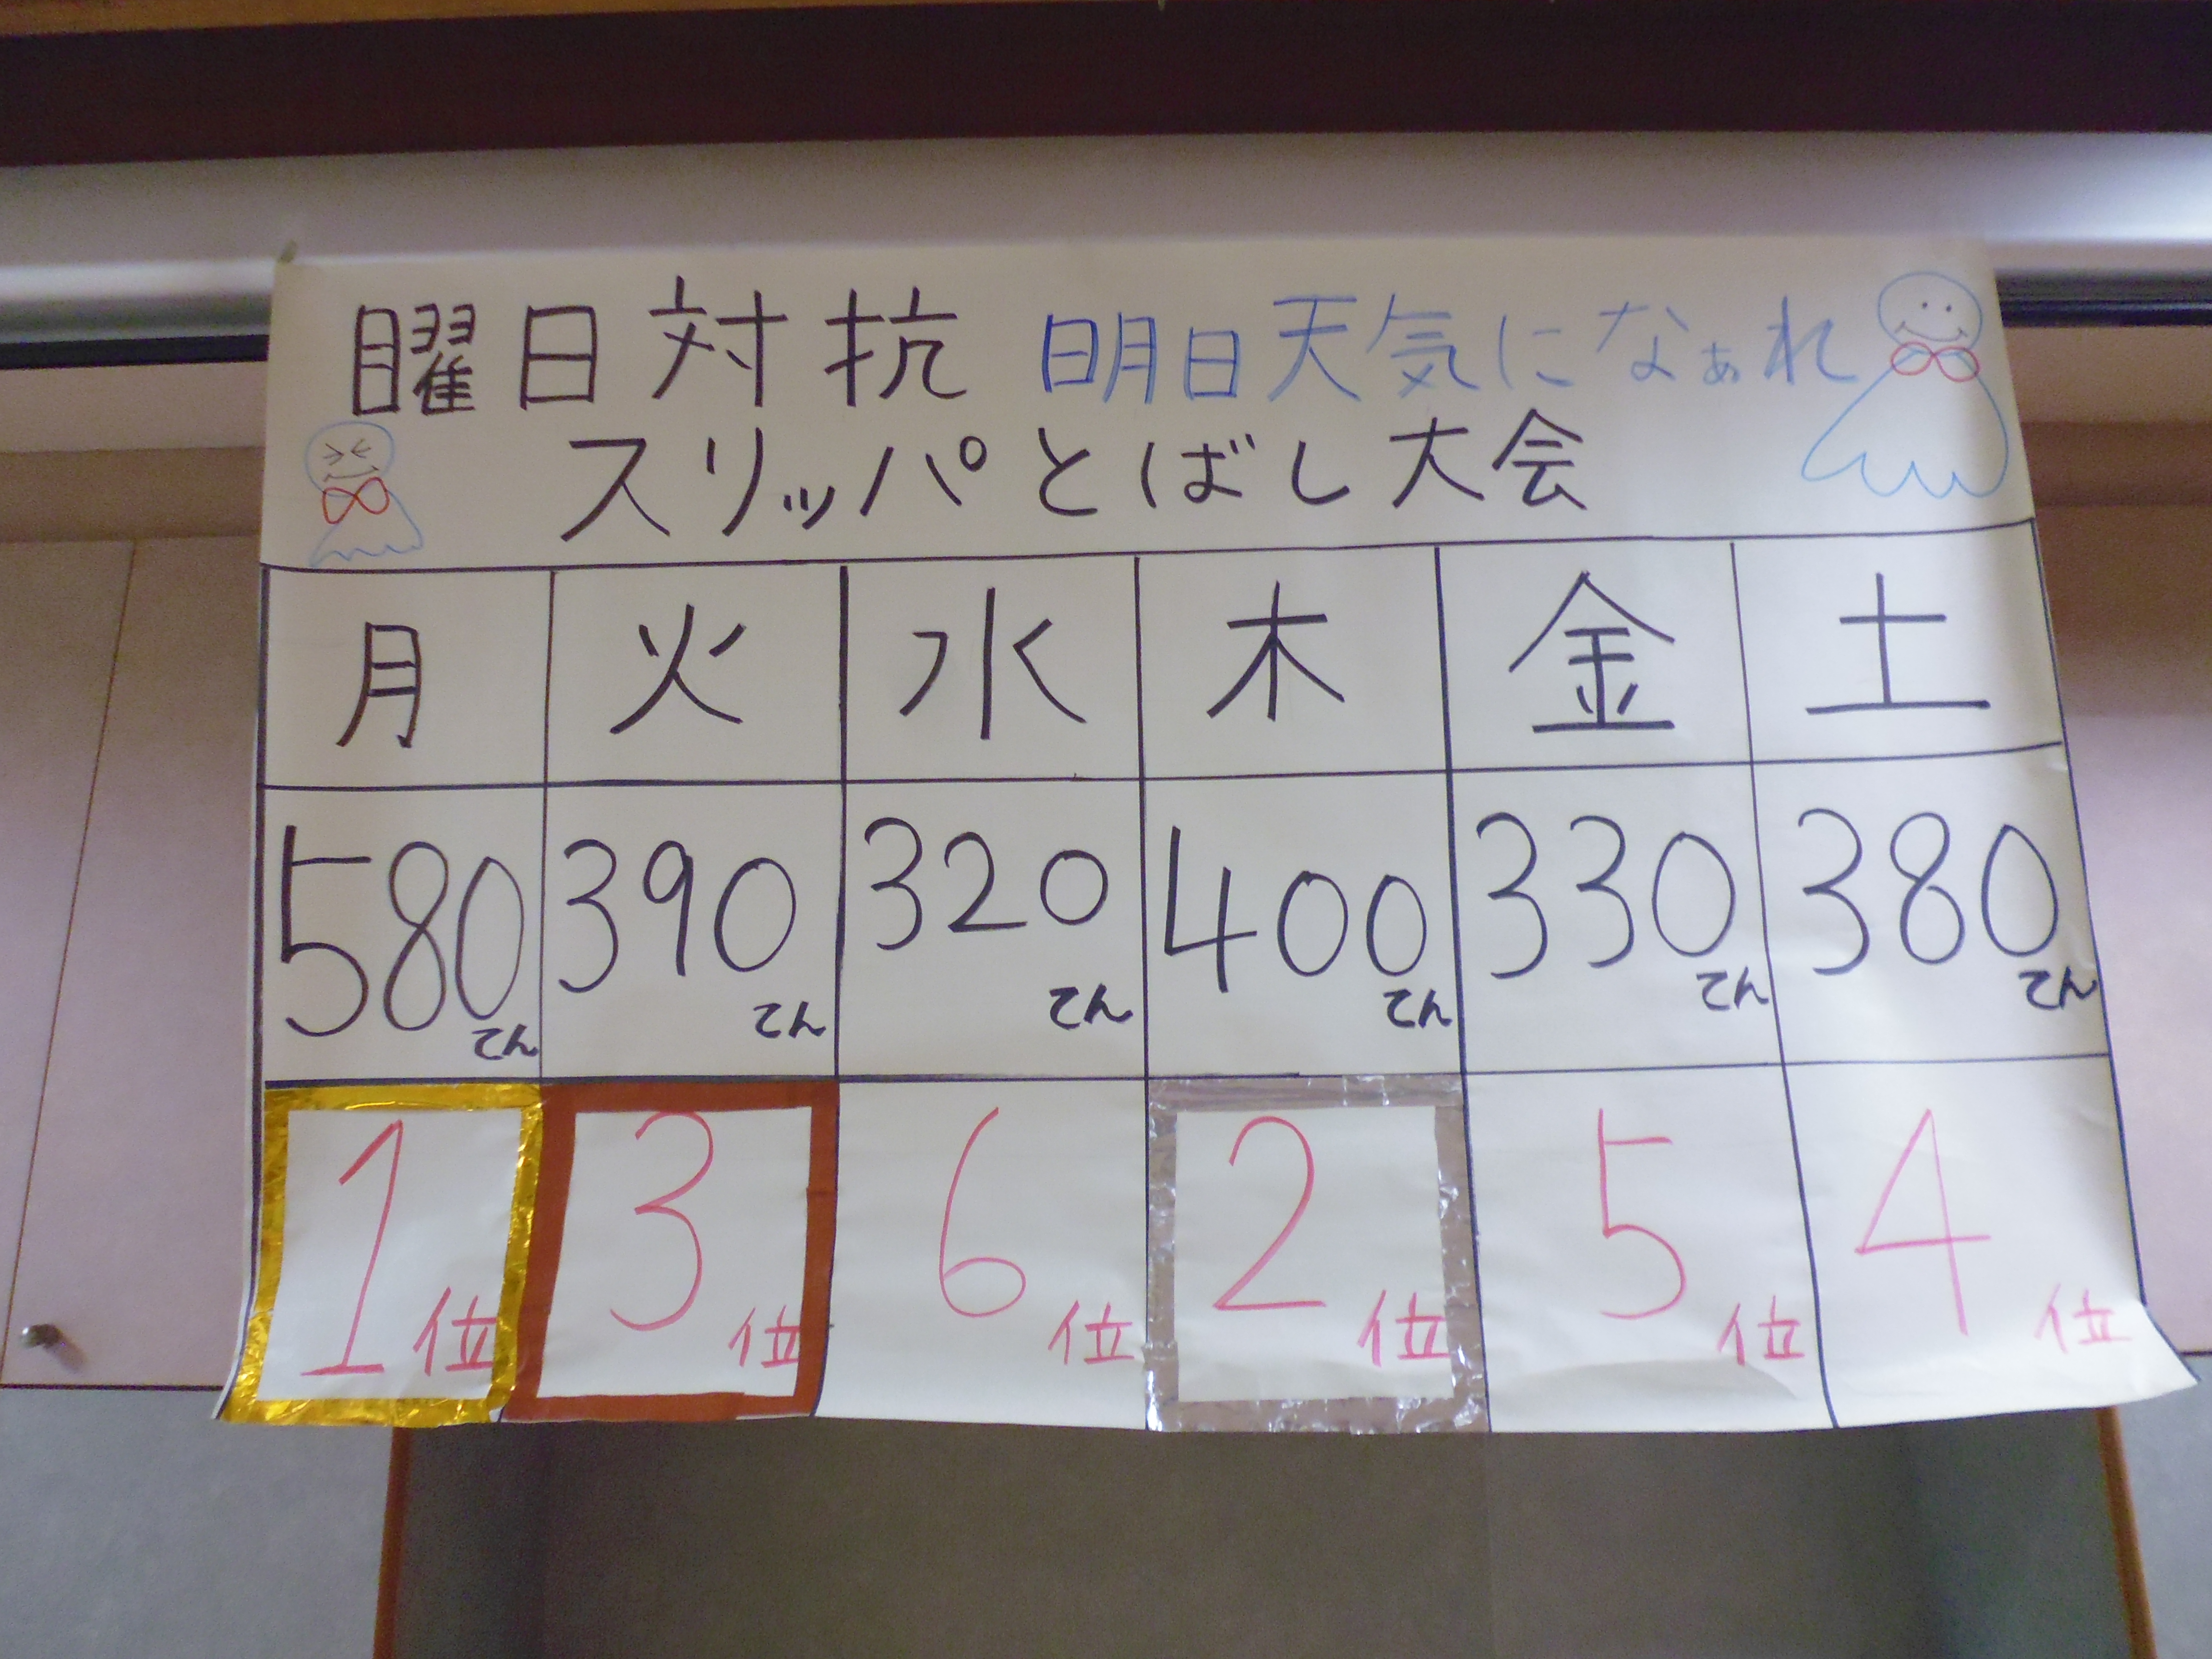 曜日対抗 明日天気になぁれ
スリッパとばし大会
月 火 水 木 金 土
580てん 390てん 320てん 400てん 330てん 380てん
1位 3位 6位 2位 5位 4位